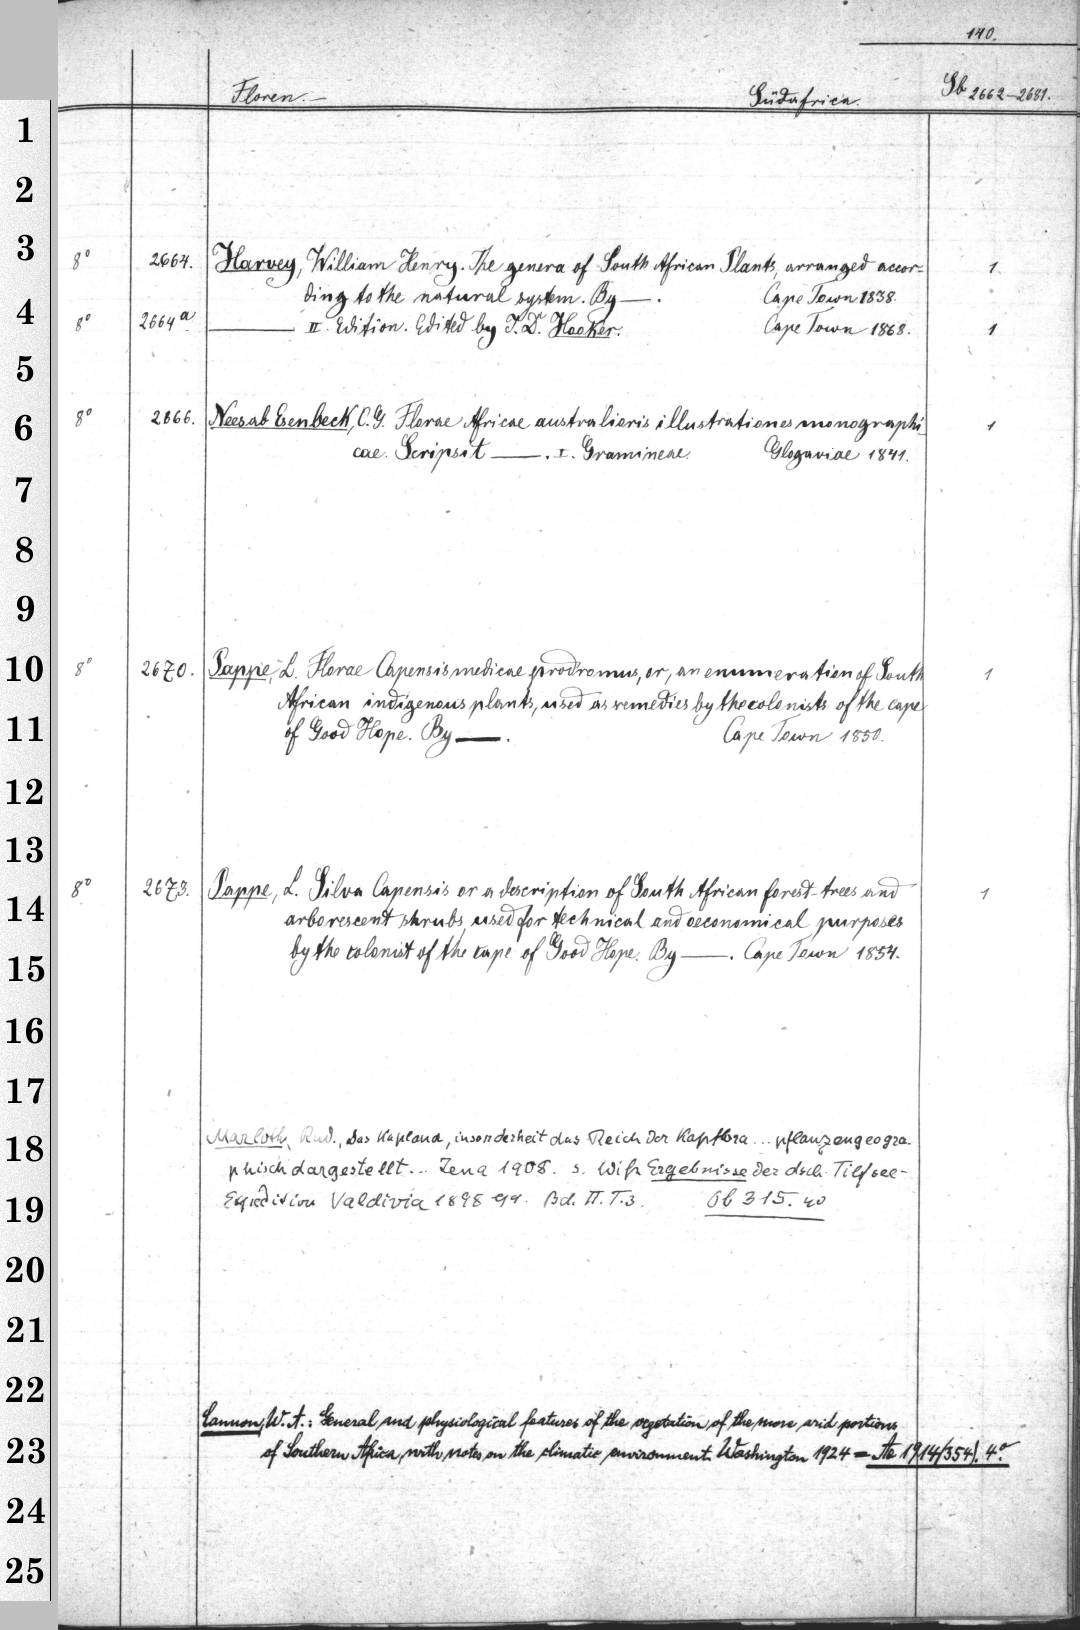 140.
Floren.— Südafrica. Sb 2662–2681.
8° 2664. Harvey, William Henry. The genera of South African Plants, arranged accor- 1
ding to the natural system. By —. Cape Town 1838.
8° 2664a. ——— II. Edition. Edited by J. D. Hooker. Cape Town 1868. 1
8° 2666. Nees ab Esenbeck, C. G. Florae Africae australioris illustrationes monographi 1
cae. Scripsit ——. I. Gramineae. Glogaviae 1841.
8° 2670. Pappe, L. Florae Capensis medicae prodromus, or, an enumeration of South 1
African indigenous plants, used as remedies by the colonists of the cape
of Good Hope. By ——. Cape Town 1850.
8° 2673. Pappe, L. Silva Capensis or a description of South African forest-trees and 1
arborescent shrubs, used for technical and oeconomical purposes
by the colonist of the cape of Good Hope. By ——. Cape Town 1854.
Marloth, Rud., Das Kapland, insonderheit das Reich der Kapflora... pflanzengeogra-
phisch dargestellt... Jena 1908. s. Wiss. Ergebnisse der dsch. Tiefsee-
Expedition Valdivia 1898 99. Bd. II. T. 3. Ob 315. 4°
Cannon, W. A.: General and physiological features of the vegetation of the more arid portions
of Southern Africa, with notes on the climatic environment. Washington 1924 = Ae 1914(354). 4°.
1
2
3
4
5
6
7
8
9
10
11
12
13
14
15
16
17
18
19
20
21
22
23
24
25